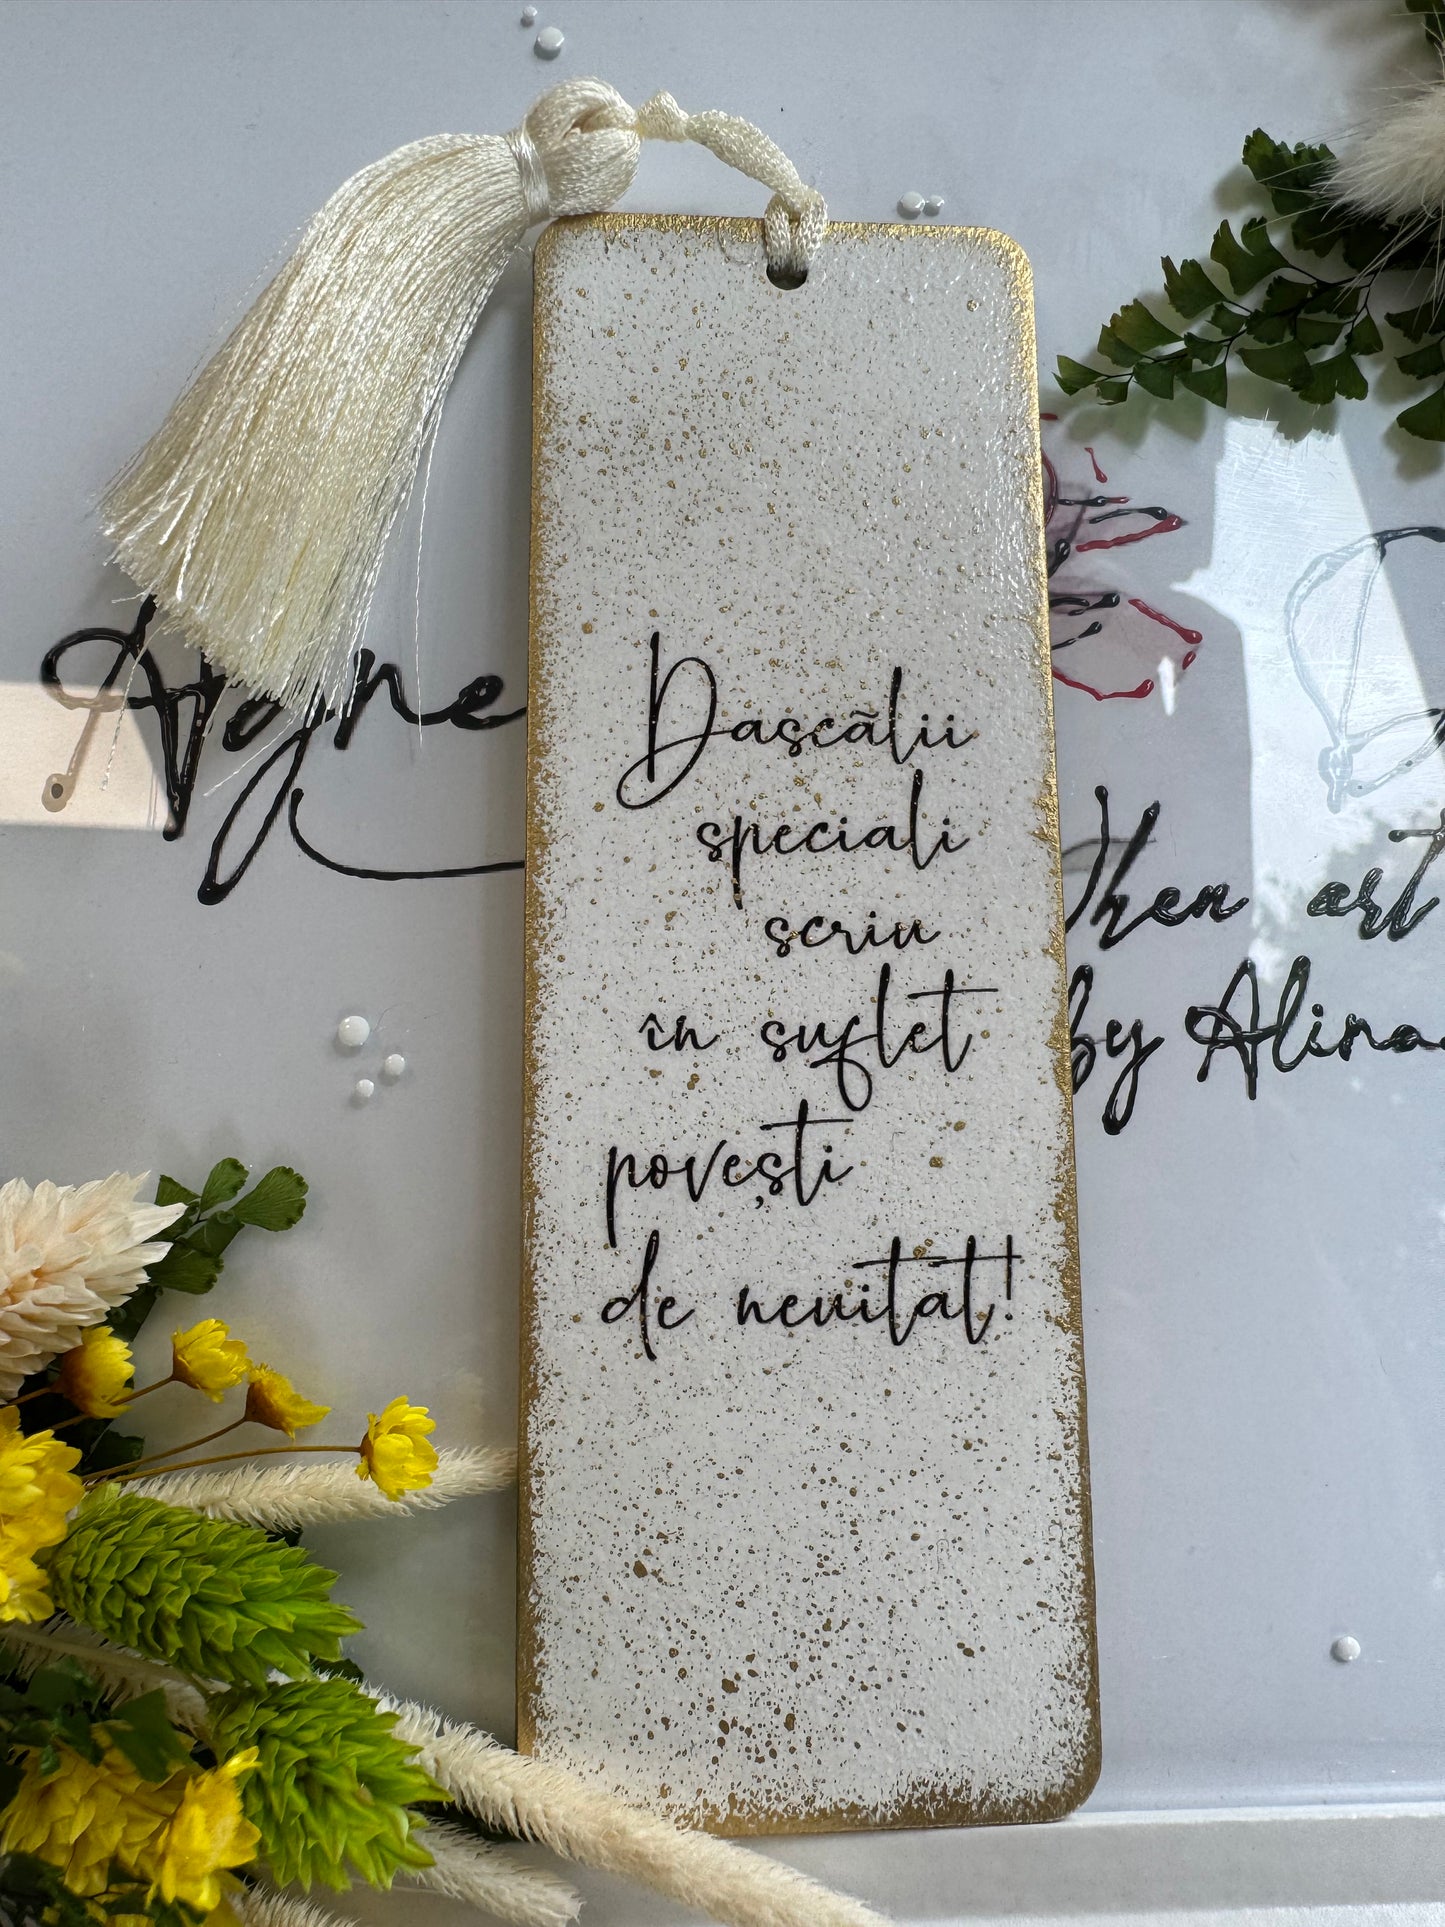 Dascălii
speciali
scriu
în suflet
povești
de neuitat!
Agne
art
by Alina